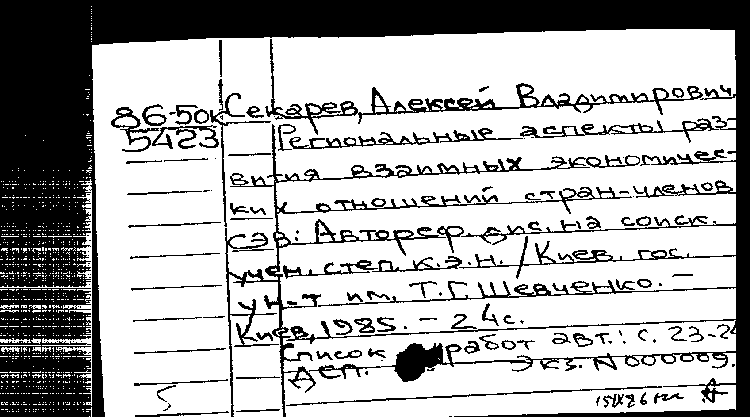 86-50к Секарев, Алексей Владимирович.
5423 Региональные аспекты раз-
вития взаимных экономичес-
ких отношений стран-членов
СЭВ: Автореф. дис. на соиск.
учен. степ. к.э.н. / Киев. гос.
ун-т им. Т.Г. Шевченко. –
Киев, 1985. – 24 с.
Список работ авт.: с. 23-24
ДСП. Экз. N 000009.